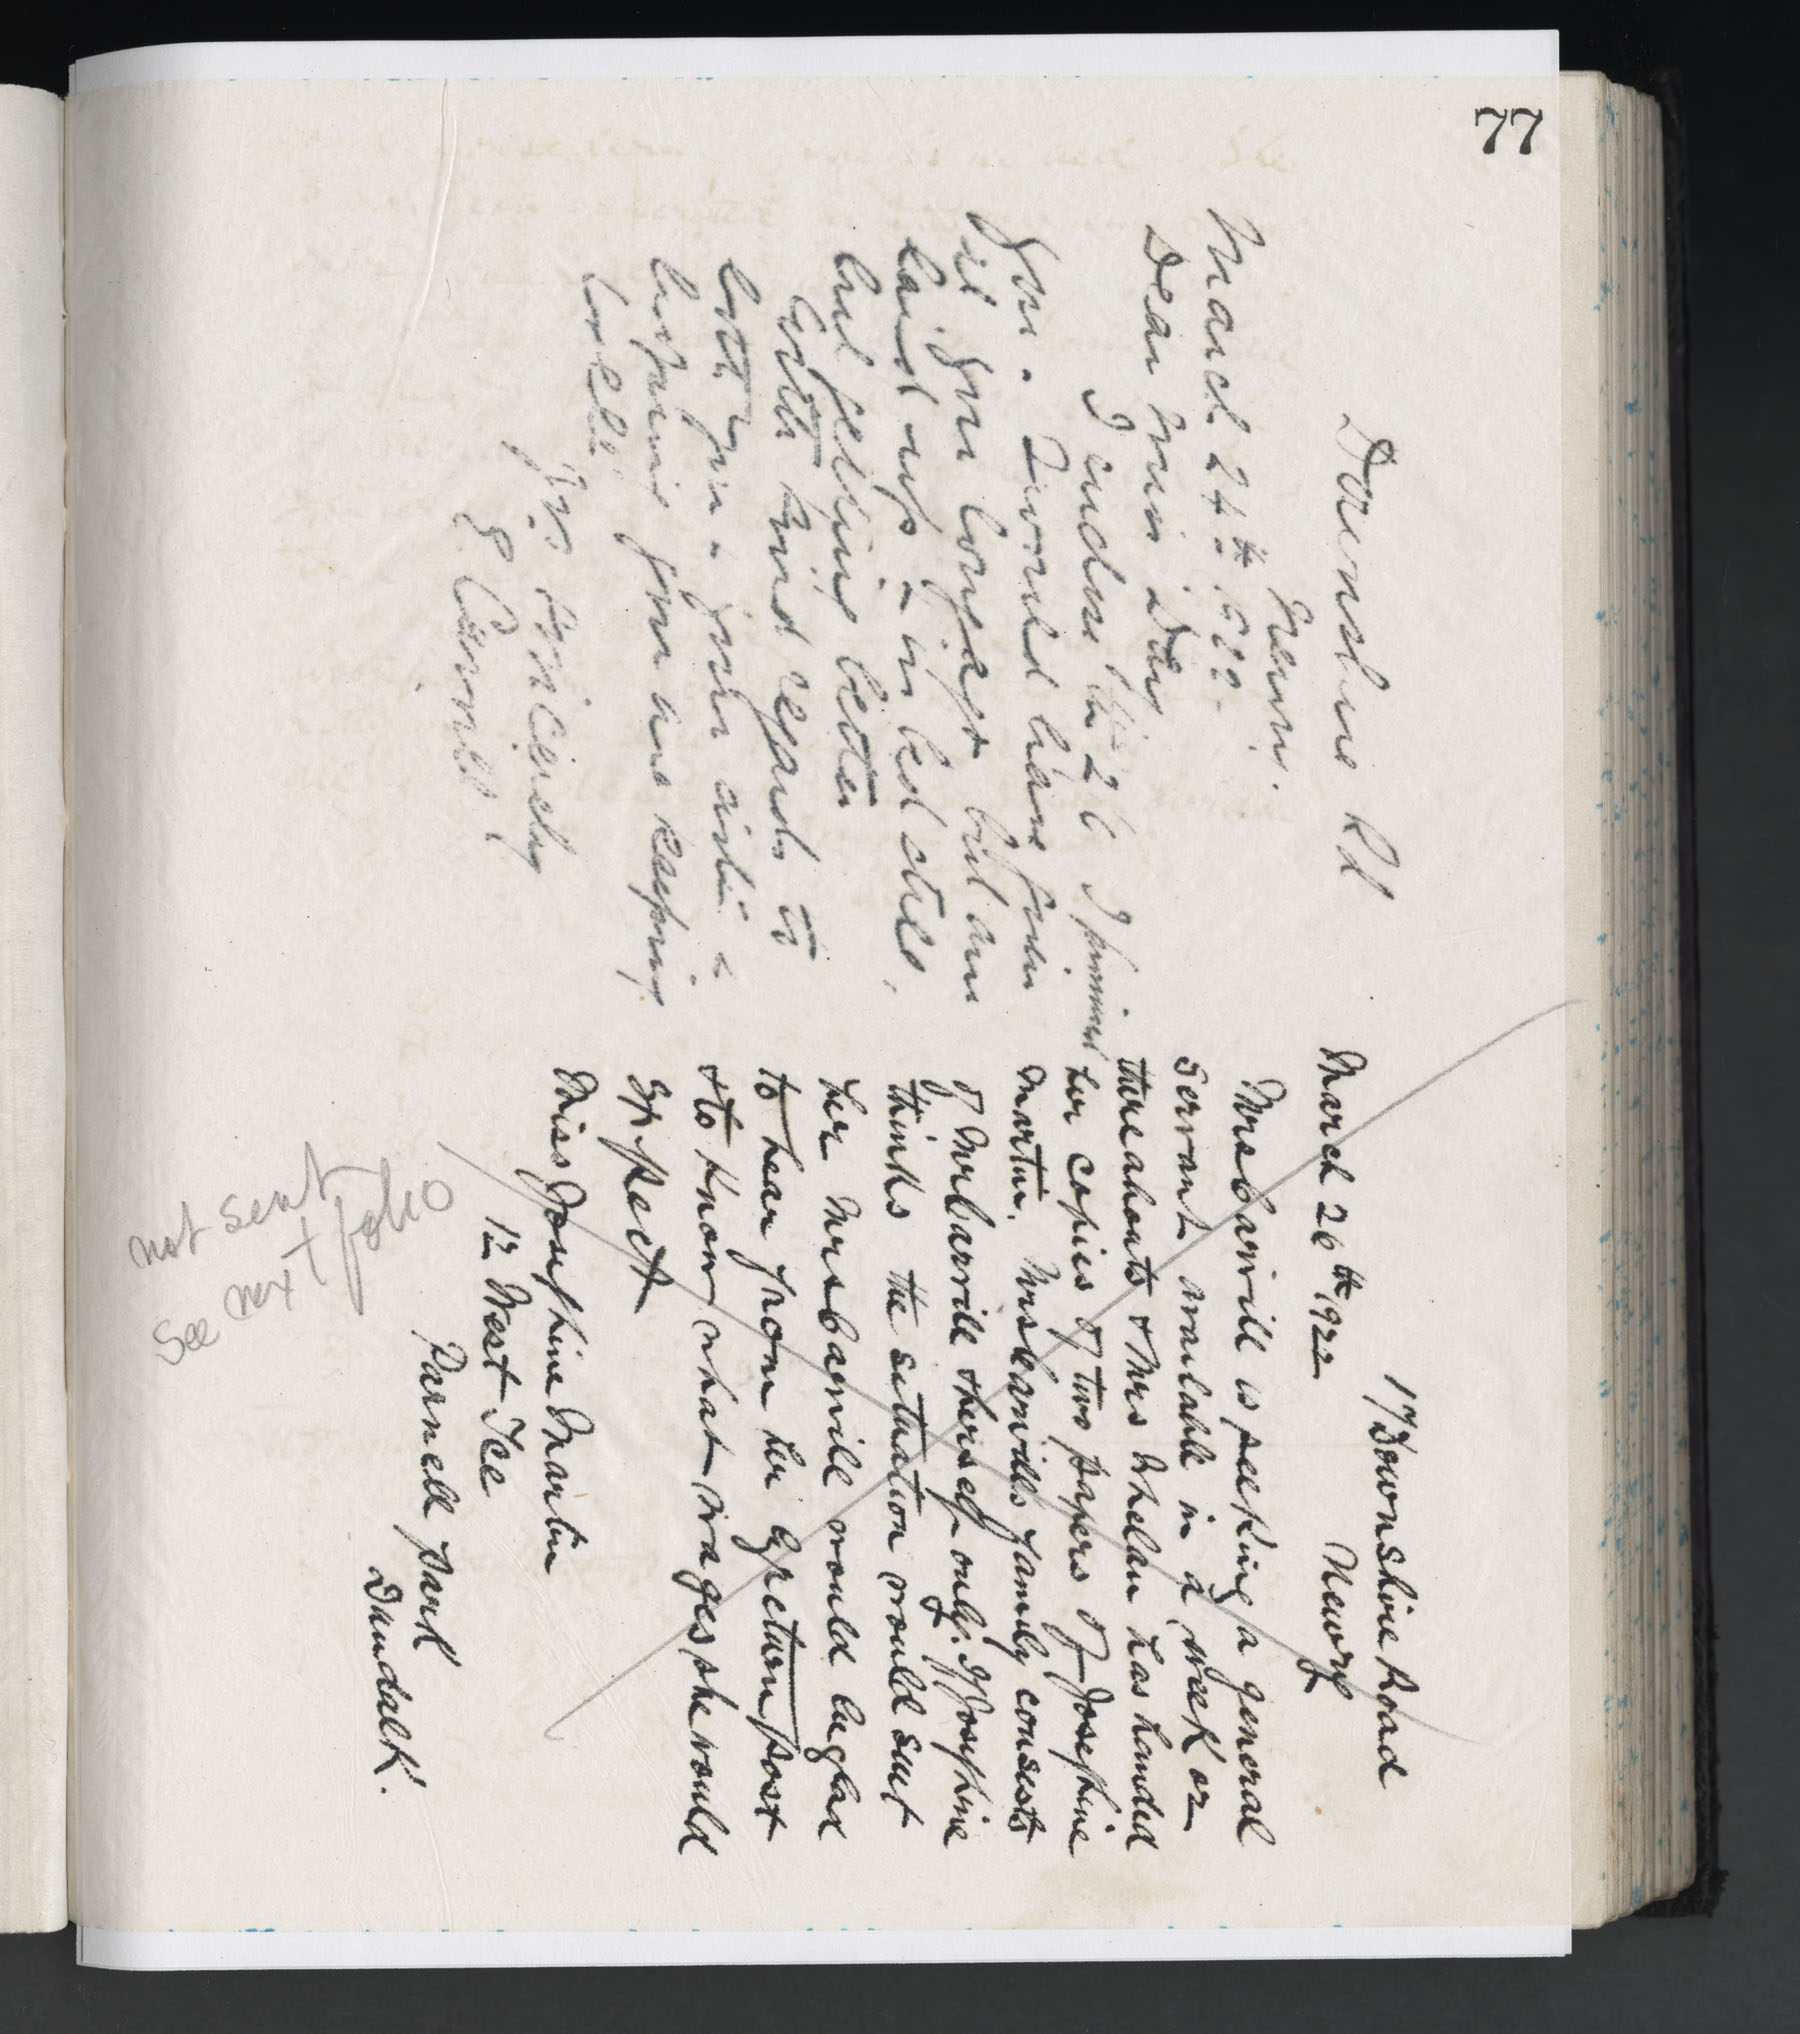 77
Downshire Rd
Newry.
March 24th 1922.
Dear Miss Day
I enclose the £26 I promised
you. I would have given
it you long ago but am
laid up & in bed still,
but feeling better
With kind regards to
both you & your sister &
hoping you are keeping
well.
Yrs sincerely
E Carvill.
17 Downshire Road
Newry
March 26th 1922
Mrs Carvill is seeking a general
servant available in a week or
thereabouts & Mrs Whelan has handed
her copies of two papers of Josephine
Martin. Mrs Carvill's family consists
of Mr Carvill & herself only. If Josephine
thinks the situation would suit
her Mrs Carvill would be glad
to hear from her by return post
& to know what wages she would
expect
Miss Josephine Martin
12 West Tce
Parnell park
Dundalk.
not sent
see next folio